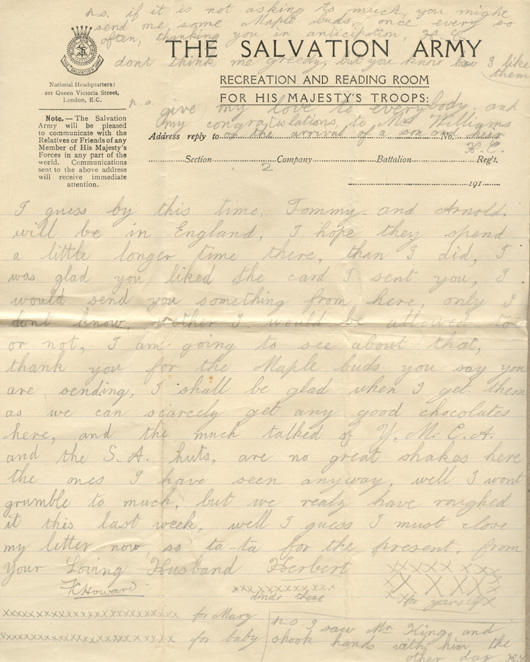 p.s. if it is not asking to much, you might
send me, some Maple buds, once every so
often, thanking you in anticipation, H.C.
dont think me greedy, but you know how I like
them
THE SALVATION ARMY
RECREATION AND READING ROOM
FOR HIS MAJESTY'S TROOPS:
National Headquarters:
Queen Victoria Street,
London, E.C.
p.s. give my love to everybody, and
my congratulations to Mrs Williams
on the arrival of a son and
H.C.
Note.—The Salvation
Army will be pleased
to communicate with the
Relatives or Friends of any
Member of His Majesty's
Forces in any part of the
world. Communications
sent to the above address
will receive immediate
attention.
Address reply to No.
Section 2 Company Battalion Regt.
191
I guess by this time, Tommy and Arnold,
will be in England, I hope they spend
a little longer time there, than I did, I
was glad you liked the card I sent you, I
would send you something from here, only I
dont know, wether I would be allowed to
or not, I am going to see about that,
thank you for the Maple buds you say you
are sending, I shall be glad when I get them
as we can scarcely get any good chocolates
here, and the much talked of Y.M.C.A.
and the S.A. huts, are no great shakes here
the ones I have seen anyway, well I wont
grumble to much, but we realy have roughed
it this last week, well I guess I must close
my letter now, so ta-ta for the present, from
Your Loving Husband Herbert
xxxxxxxxxxxx
XXXXX
XXXXX
for yourself
xxxxxxxxxxxxxxxxxxxx for Mary
xxxxxxxxxxxxxxxxxxxx for baby
p.s I saw Mr King, and
shook hands with him the
other day